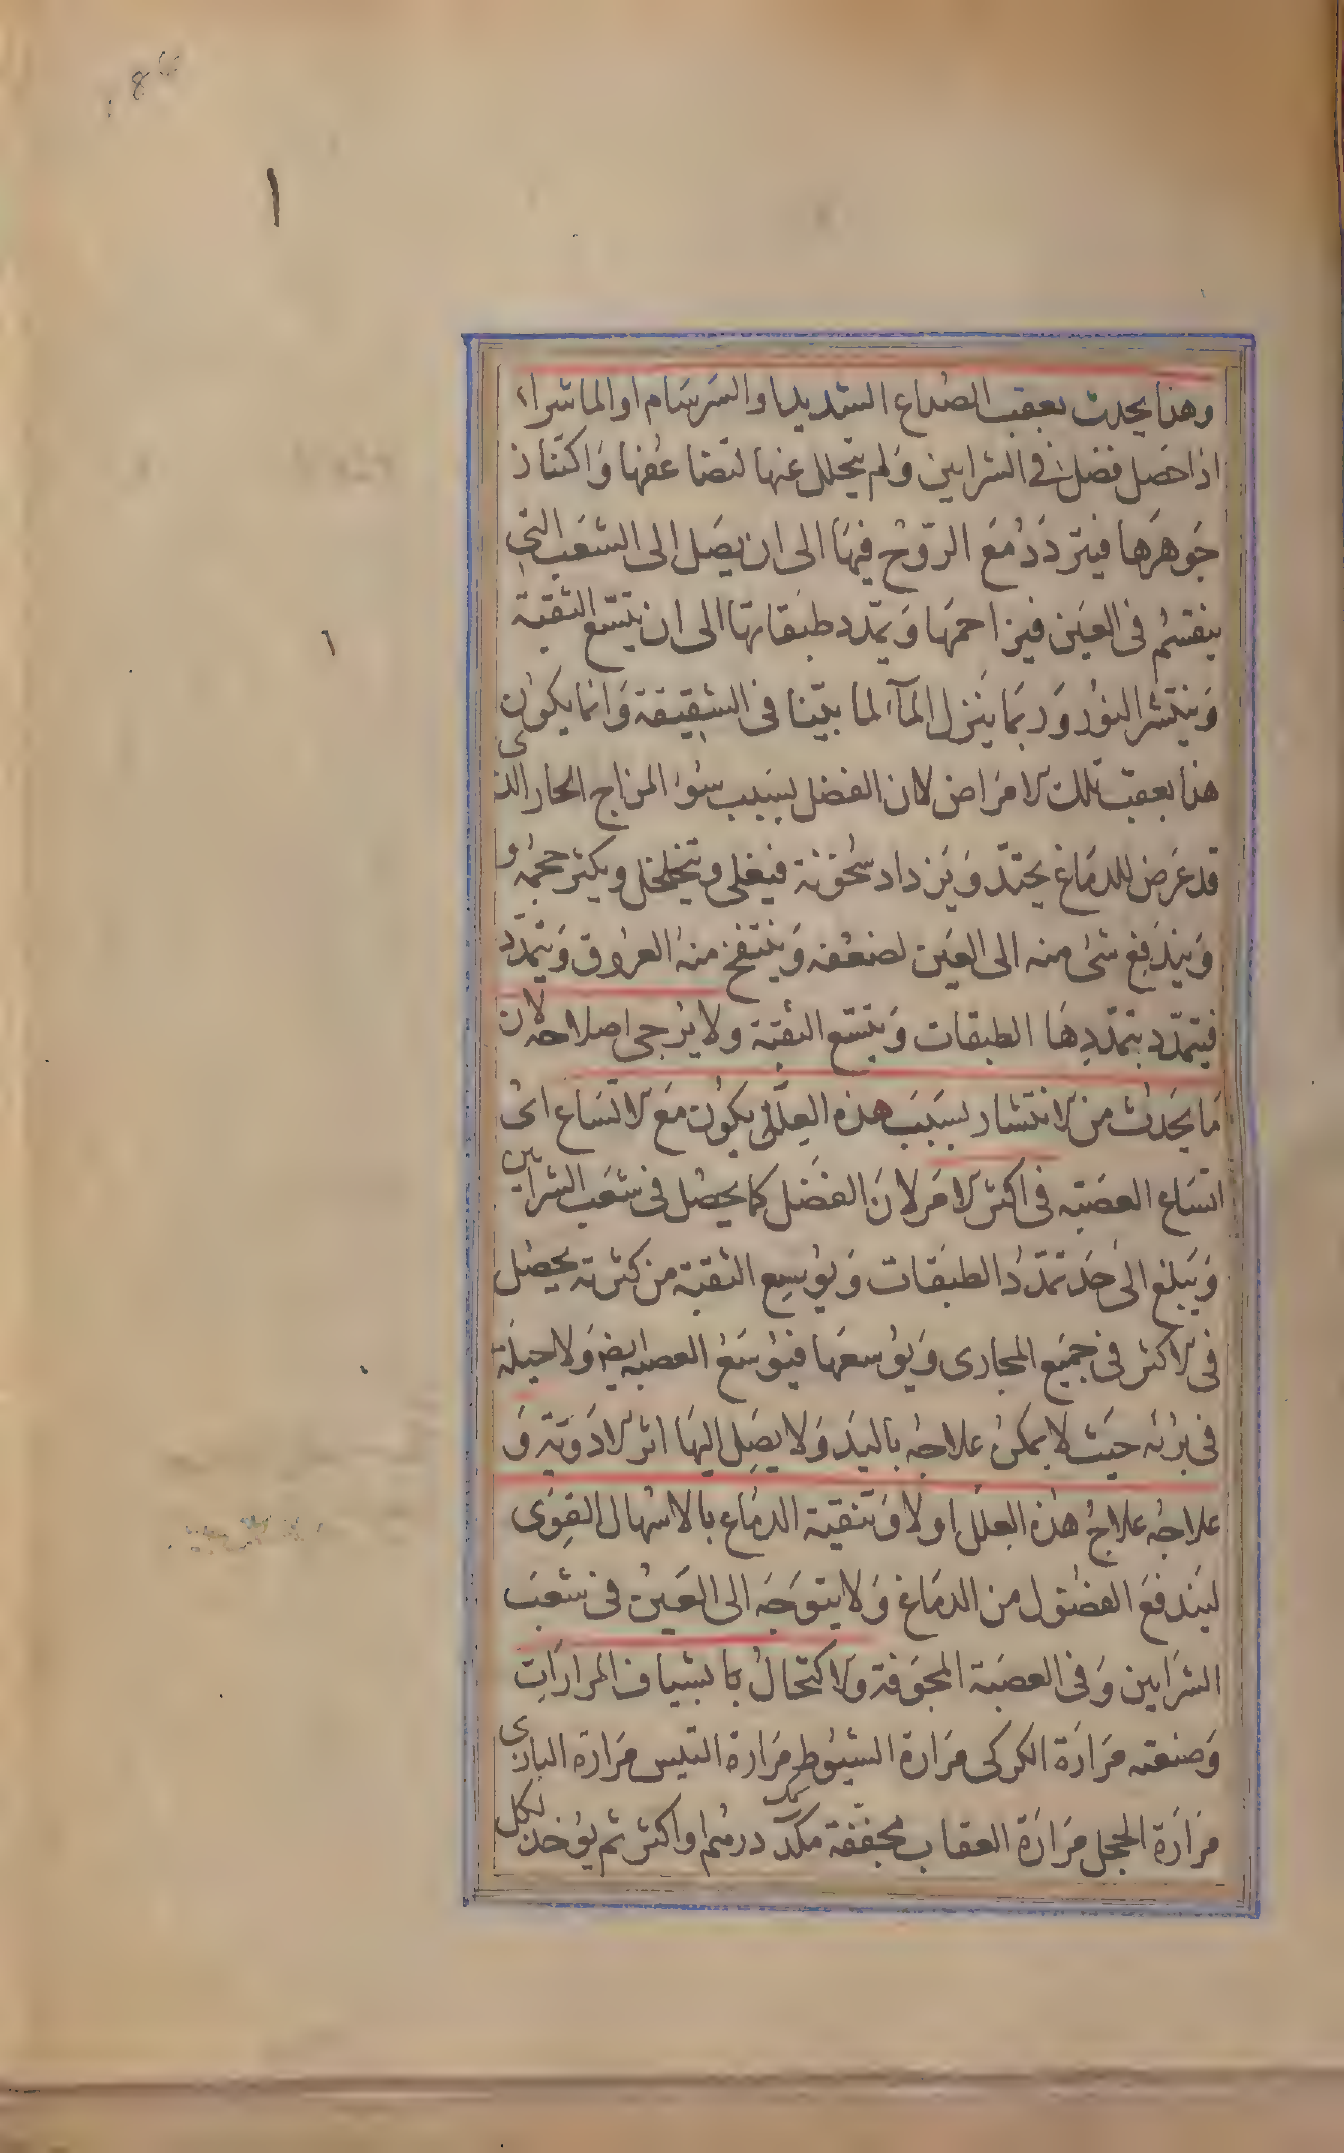 وهذا يحدث بعقب الصُداع الشديد او السَرسَام او الماشراء
اذا حَصل فضل في الشرايين وَلم يتحلل عنها لتضاعفها وَاكتناز
جَوهَرها فيتردَدُ مَعَ الروّح فيهَا الى ان يصَل الى الشعَب التي
ينقسُم فى العيَن فيزاحمهَا وَيمّدد طبَقاتها الى ان يتسّع الثقبة
وَينتشر النوُر وَربمَا ينَزل المآء لما بيّنا فى الشقيقة وَانما يكوُن
هذا بعقب تلك الامرَاض لان الفضل بسَبب سُوء المزاج الحار الذى
قد عَرض للدمَاغ يحتدّ وَيَزداد سُخونة فيغلى ويتخلخل ويكثر حجمُه و
وَيندَفِع شىء منه الى العيَن لضعُفه وَينتفخ منهُ العرُوق وَيتمدّد
فيتمدّد بتمدّدِهَا الطبقات وَيتسّع الثقبة ولا يُرجى اصلاحه لان
مَا يَحدثُ من الانتشار بسَبَب هذه العِلل يكوُن مَع الاتسَاع اى
اتسَاع العصَبة فى اكثر الامَر لانَ الفَضل كما يحصُل فى شعَب الشرايين
وَيَبلغ الىَ حَد تمدّدُ الطبَقات وَيوُسِع الثقبة من كثرته يحصُل
فى الاكثر فى جمَيع المجارى وَيوُسعهَا فيوُسَعُ العصبة ايضا وَلا حيلَة
فى بُرئه حيَث لا يمكنُ علاجُه باليَد وَلا يصَِل اليهَا اثر الادَوَية وَ
علاجُه علاجُ هذه العِللَ اولا وَتنقية الدمَاع بالاسُهال القوِى
ليَندفعَ الفضُول من الدمَاغ وَلا يتوَجَه الى العَينُ فى شعَب
الشرَايين وَفى العصَبة المجَوفة وَالاكتحالُ بالشياف المرارَاتِ
وَصنعته مَرارَة الكركى مرَارة الشبوُط مرَارة التيس مَرارة البازى
مرَارَة الحجل مرَارَة العقاب مجفّفة مكدّ درهُم او اكثر ثم يوُخذ لكل